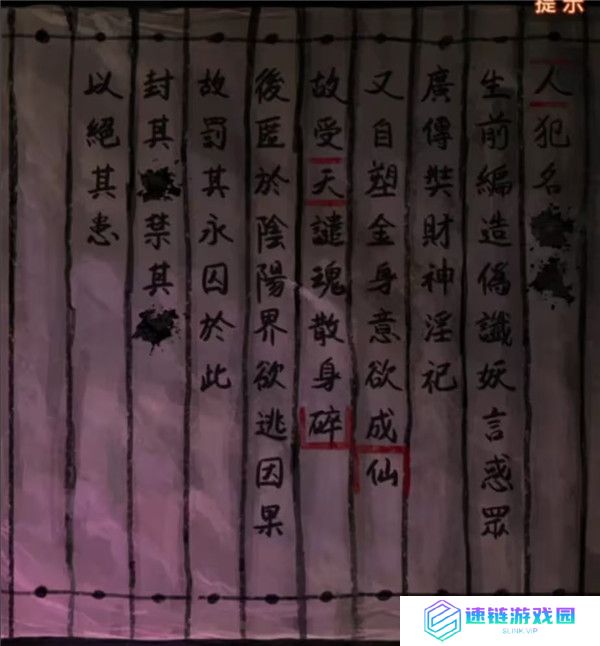 提示
人犯名
生前編造偽讖妖言惑眾
廣傳奘財神淫祀
又自塑金身意欲成仙
故受天譴魂散身碎
後匿於陰陽界欲逃因果
故罰其永囚於此
封其禁其
以絕其患
速链游戏园
SLINK.VIP